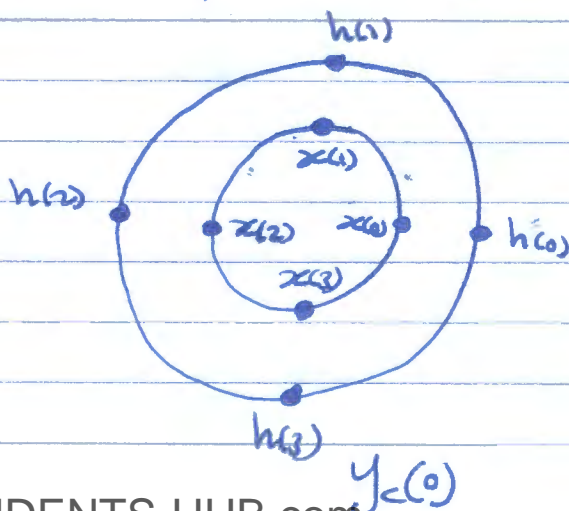 h(1)
x(1)
h(2) x(2) x(0) h(0)
x(3)
h(3)
y_c(0)
STUDENTS-HUB.com